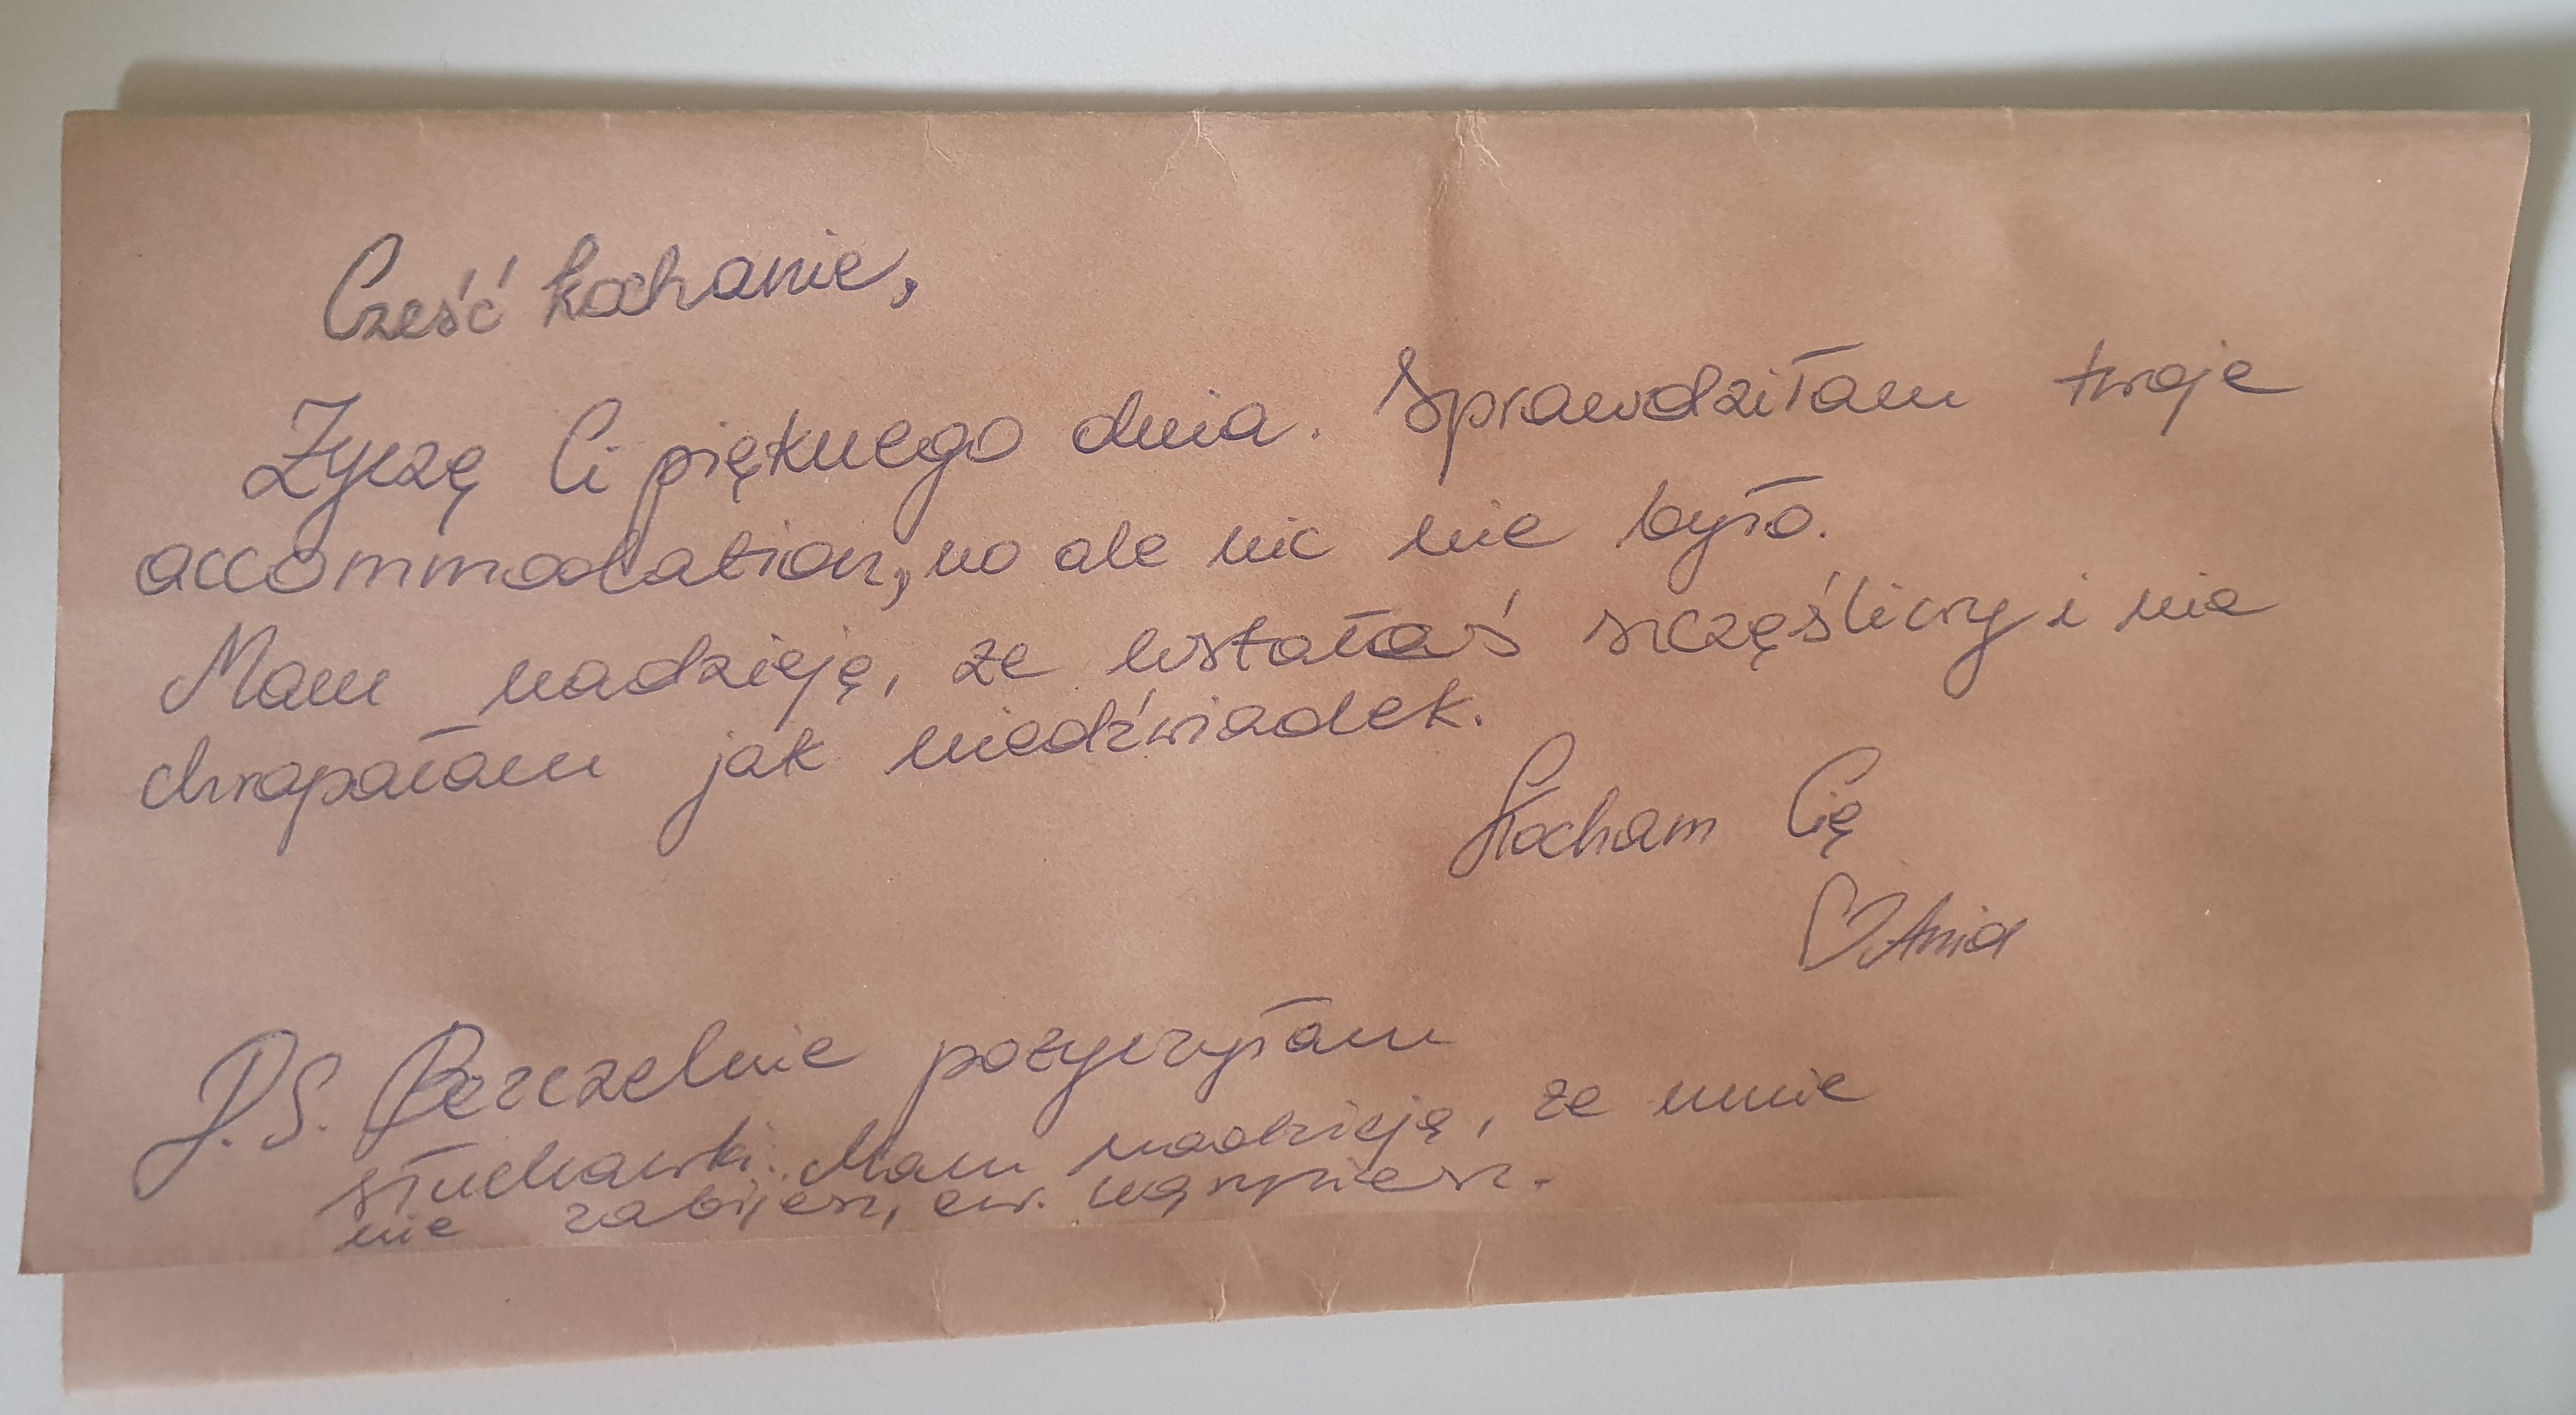 Cześć kochanie,
Życzę Ci pięknego dnia. Sprawdziłam twoje
accommodation, no ale nic nie było.
Mam nadzieję, że wstałaś szczęśliwy i nie
chrapałam jak niedźwiadek.
Kocham Cię
♡ Ania
P.S. Bezczelnie pożyczyłam
słuchawki. Mam nadzieję, że mnie
nie zabijesz, ew.